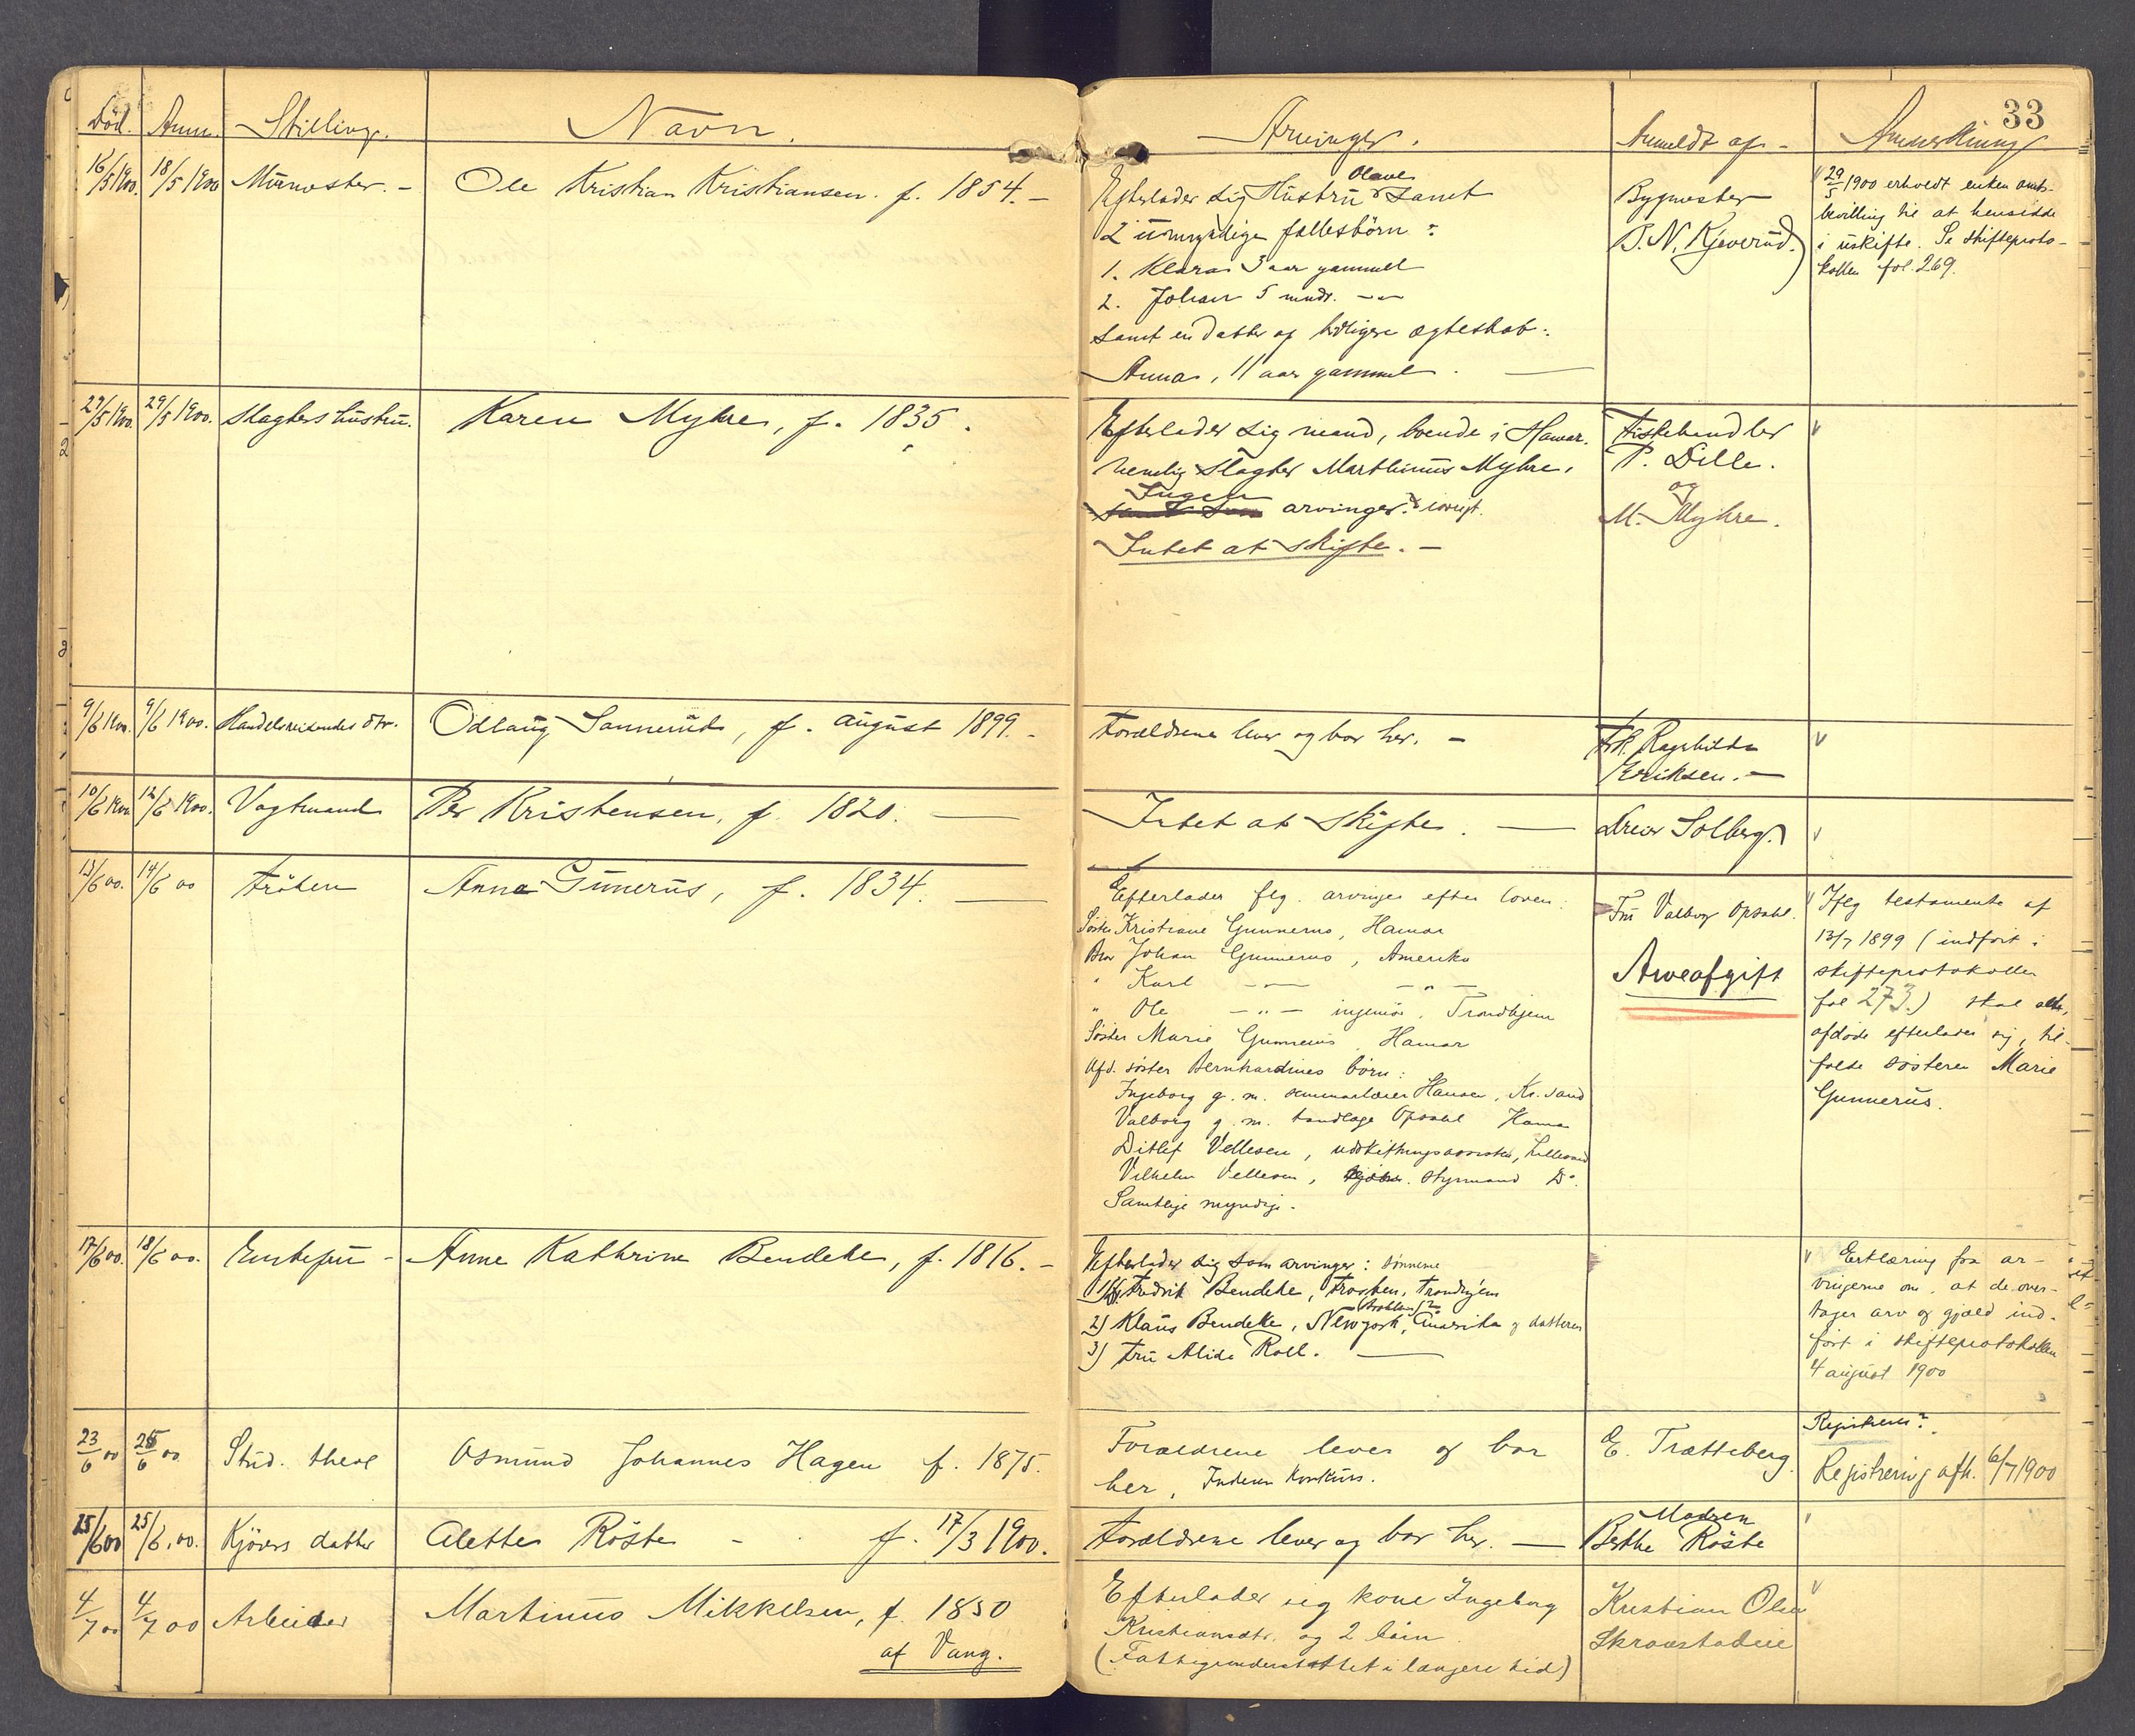 33
Död. Anm. Stilling. Navn. Arvinger. Anmeldt af Anmerkning
16/5 1900. 18/5 1900 Murmester. - Ole Kristian Kristiansen. f. 1854. -
Efterlader sig Hustru Olave samt
2 umyndige fællesbörn:
1. Klara 3 aar gammel
2. Johan 5 mndr. -"-
samt en datter af tidligere ægteskab:
Anna, 11 aar gammel.
Bygmester
P. N. Kjeverud.
29/5 1900 erholdt enken amts-
bevilling til at hensidde
i uskifte. Se skifteproto-
kollen fol. 269.
27/5 1900. 29/5 1900. Slagters hustru. Karen Myhre, f. 1835.
Efterlader sig mand, boende i Hamar.
nemlig slagter Marthinus Myhre.
Ingen arvinger iövrigt.
Intet at skifte. -
Fiskehandler
P. Dille.
og
M. Myhre.
9/6 1900. 9/6 1900. Handelsreisendes dtr. Odlaug Sannerud, f. august 1899. -
Forældrene lever og bor her. -
Frk. Ragnhilda
Eriksen. -
10/6 1900 12/6 1900. Vagtmand Per Kristensen, f. 1820.
Intet at skifte. Solberg.
13/6 00. 14/6 00 Fröken Anna Gunerus, f. 1834.
Efterlader flg. arvinger efter loven:
Søster Kristiane Gunnerus, Hamar
Bror Johan Gunnerus, Amerika
" Karl -"- -"-
" Ole -"- ingeniør, Trondhjem
Søster Marie Gunnerus, Hamar
Afd. søster Bernhardines börn:
Ingeborg g. m. seminarlærer Hansen, Kr.sand
Valborg g. m. tandlæge Opsahl Hamar
Ditlef Vellesen, udskiftningsassistent, Lillesand
Vilhelm Vellesen, styrmand Do.
Samtlige myndige.
Fru Valborg Opsahl.
Arveafgift
Ifölg testamente af
13/7 1899 (indfört i
skifteprotokollen
fol 273.) skal alt,
afdöde efterlader sig, til-
falde søsteren Marie
Gunnerus.
17/6 00. 18/6 00. Enkefru - Anne Kathrine Bendeke, f. 1816. -
Efterlader sig som arvinger: sönnerne
1) Fredrik Bendeke, Trondhjem
2) Klaus Bendeke, Newyork, Amerika og datteren
3) Fru Alida Roll.
Erklæring fra ar-
vingerne om, at de over-
tager arv og gjæld ind-
fört i skifteprotokollen
4 august 1900
23/6 00 25/6 00 Stud. theol Osmund Johannes Hagen f. 1875.
Forældrene lever og bor
her. Faderen Konkurs.
E. Trætteberg.
Registreres?
Registrering afh. 6/7 1900
25/6 00 25/6.00. Kjörers datter Alette Röste - f. 17/3 1900.
Forældrene lever og bor her.
Moderen
Berthe Röste
4/7 00 4/7 00 Arbeider Martinus Mikkelsen, f. 1850
af Vang.
Efterlader sig kone Ingeborg
Kristiansdtr. og 2 börn.
(Fattigunderstöttet i længere tid)
Kristian Olsen